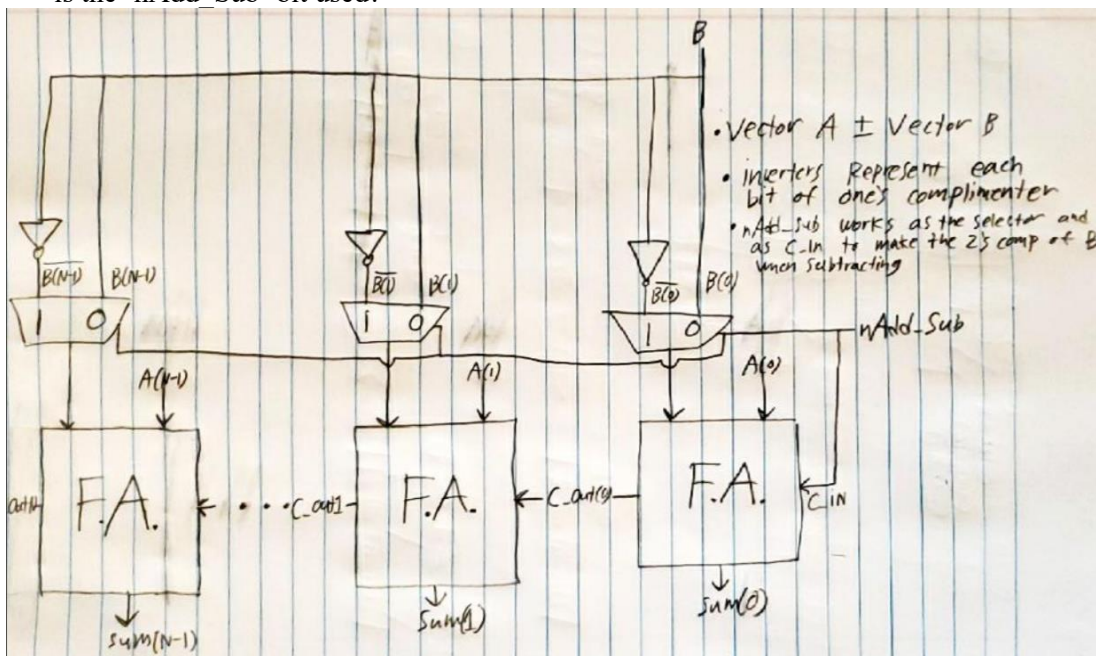 is the "nAdd_Sub" bit used?
B
• Vector A ± Vector B
• inverters Represent each
bit of one's complimenter
• nAdd_Sub works as the selector and
as C_In to make the 2's comp of B
when subtracting
B(N-1) B(N-1) B(1) B(1) B(0) B(0)
1 0 1 0 1 0
nAdd_Sub
A(N-1) A(1) A(0)
F.A. F.A. F.A.
C_out1 C_out(0) C_IN
sum(N-1) sum(1) sum(0)